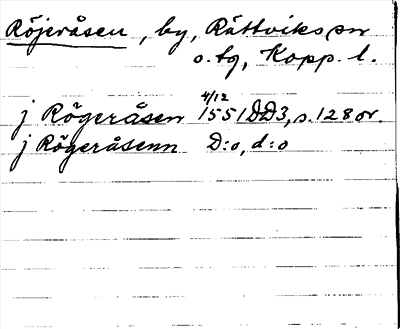 Röjeråsen, by, Rättviks sn
o. tg, Kopp. l.
4/12
j Rögeråsen 1551 DD3, s. 128 or.
j Rögeråsenn D:o, d:o